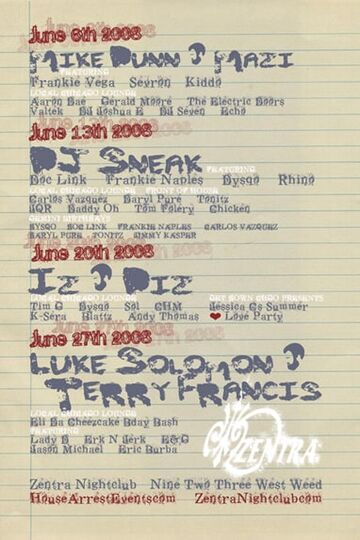 June 6th 2008
Mike Dunn & Mazi
FEATURING
Frankie Vega Sevron Kiddo
LOCAL CHICAGO LOUNGE
Aaron Bae Gerald Moore The Electric Doors
Valtek DJ Joshua E DJ Seven Echo
June 13th 2008
June 13th 2008
DJ Sneak FEATURING
Doc Link Frankie Naples Bysqo Rhino
LOCAL CHICAGO LOUNGE FRONT OF HOUSE
Carlos Vazquez Daryl Pure Tonitz
HQR Daddy Oh Tom Folery Chicken
GEMINI BIRTHDAYS
BYSQO DOC LINK FRANKIE NAPLES CARLOS VAZQUEZ
DARYL PURE TONITZ JIMMY KASPER
June 20th 2008
June 20th 2008
Iz & Diz
LOCAL CHICAGO LOUNGE GET DOWN CHGO PRESENTS
Tim G Bysqo Sol CHM Jessica Gs Summer
K-Sera Blattz Andy Thomas ❤ Love Party
June 27th 2008
June 27th 2008
Luke Solomon &
Terry Francis
LOCAL CHICAGO LOUNGE
Eli Da Cheezcake Bday Bash
Lady D Erk N Jerk E&G
Jason Michael Eric Burba
ZENTRA
Zentra Nightclub Nine Two Three West Weed
HouseArrestEventscom ZentraNightclubcom